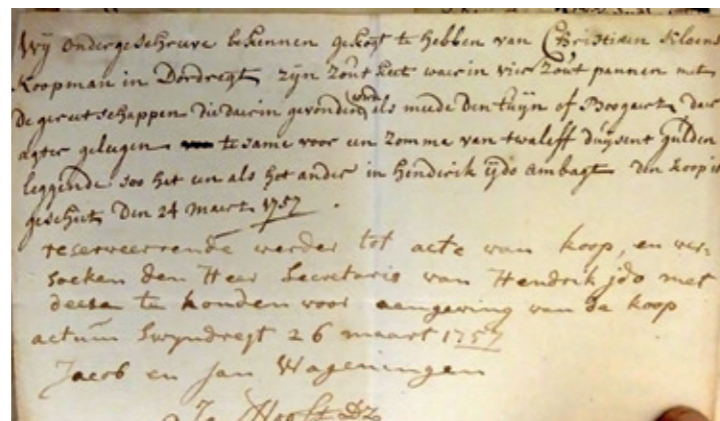 Wij ondergeschreve bekennen gekogt te hebben van Christiaen Kloens
Koopman in Dordregt zijn Zout keet waerin vier Zout pannen met
De gereetschappen die daerin gevonden werde als meede Den tuijn of Boogaert daer
agter gelegen te same voor een Zomma van twaleff duijsent gulden
leggende soo het een als het ander in Henderik ijdo ambagt den koop is
geschiet Den 24 maert 1757.
reserveerrende verder tot acte van koop, en ver-
soeken den Heer Secretaris van Hendrik jdo met
deese te houden voor aengeving van de koop
actum Swyndregt 26 maart 1757
Jacob en Jan Wageningen
Hooft Dz